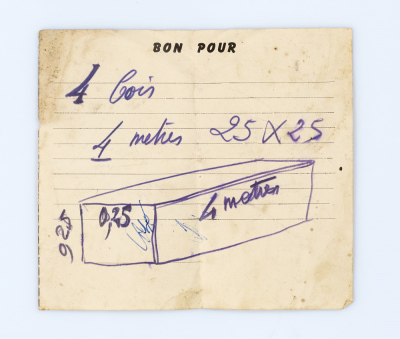 BON POUR
4 bois
4 metres 25 X 25
0,25
4 metres
0,25